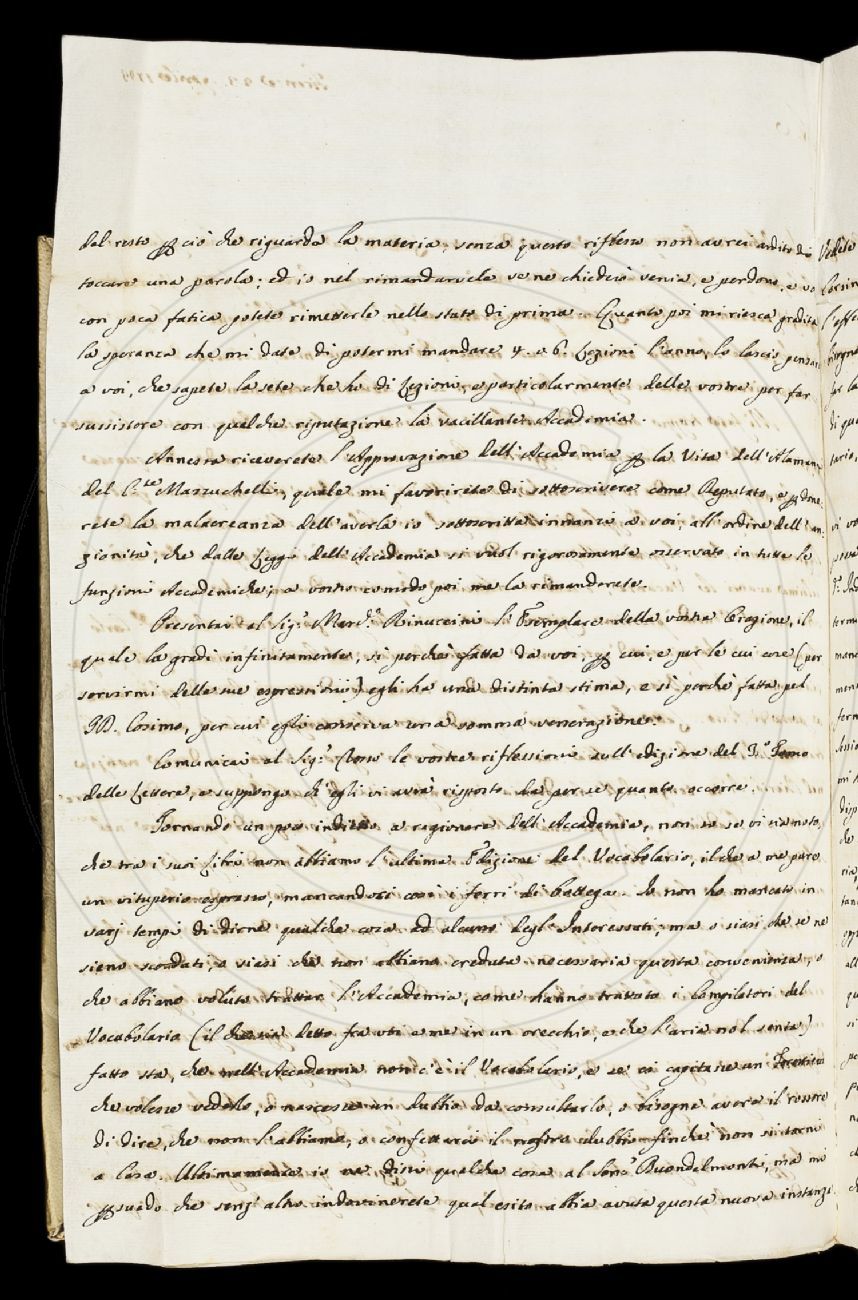 del resto p ciò che riguarda la materia, senza questo riflesso non avrei ardito di
toccare una parola; ed io nel rimandarvela ve ne chiederò venia, e perdono, e voi
con poca fatica potete rimetterle nello stato di prima. Quanto poi mi riesca gradita
la speranza che mi date di potermi mandare 4. o 6. Lezioni l'anno, lo lascio pensare
a voi, che sapete la sete che ho di Lezioni, e particolarmente delle vostre per far
sussistere con qualche riputazione la vacillante Accademia.
Annessa riceverete l'Approvazione dell'Accademia p la Vita dell'Alamanni
del C.te Mazzuchelli, quale mi favorirete di sottoscrivere come Deputato, e pdone-
rete la malacreanza dell'averla io sottoscritta innanzi a voi, all'ordine dell'an-
zionità, che dalle Leggi dell'Accademia si vuol rigorosamente osservato in tutte le
funzioni Accademiche; a vostro comodo poi me la rimanderete.
Presentai al Sig.r March.e Rinuccini l'Esemplare della vostra Orazione, il
quale la gradì infinitamente, sì perchè fatta da voi, p cui, e per le cui cose (per
servirmi delle sue espressioni) egli ha una distinta stima, e sì perchè fatta pel
PD. Cosimo, per cui egli conserva una somma venerazione.
Comunicai al Sig.r le vostre riflessioni sull'edizione del 3.o Tomo
delle Lettere, e suppongo ch'egli vi avrà risposto da per se quanto occorre.
Tornando un poco indietro a ragionare dell'Accademia, non so se vi sia noto,
che tra i suoi Libri non abbiamo l'ultima Edizione del Vocabolario, il che a me pare
un vituperio espresso, mancandoci così i ferri di bottega. Io non ho mancato in
varj tempi di dirne qualche cosa ad alcuno degl'Interessati; ma o siasi che se ne
sieno scordati, o siasi che non abbiano creduta necessaria questa convenienza, o
che abbiano voluto trattar l'Accademia, come hanno trattato i Compilatori del
Vocabolario (il che sia detto fra voi e me in un orecchio, e che l'aria nol senta)
fatto sta, che nell'Accademia non c'è il Vocabolario, e se ci capitasse un Forestiero
che volesse vederlo, o nascesse un dubbio da consultarlo, o bisogna avere il rossore
di dire, che non l'abbiamo, o confettarci il nostro dubbio finchè non si torni
a Casa. Ultimamente io ne dissi qualche cosa al Sen.r Buondelmonti, ma mi
psuado che senz'altro indovinerete qual esito abbia avuto questa nuova instanza.